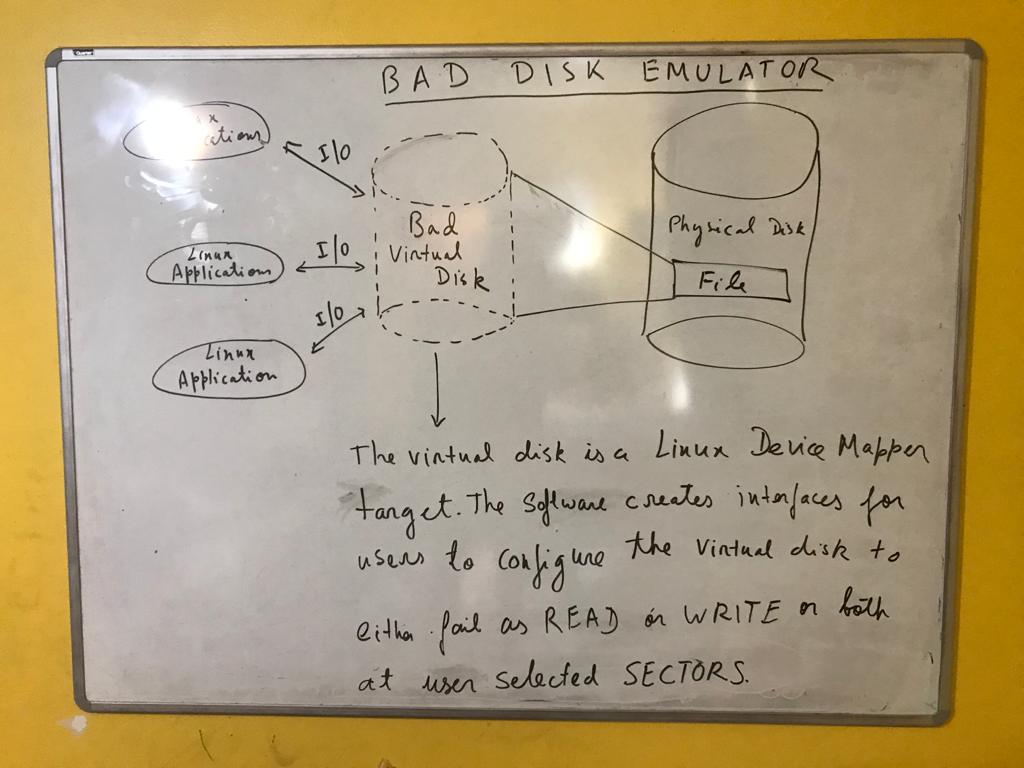 BAD DISK EMULATOR
I/O
Bad
Virtual
Disk
Physical Disk
File
Linux
Applications
I/O
Linux
Application
I/O
The virtual disk is a Linux Device Mapper
target. The software creates interfaces for
users to configure the virtual disk to
either fail as READ or WRITE or both
at user selected SECTORS.